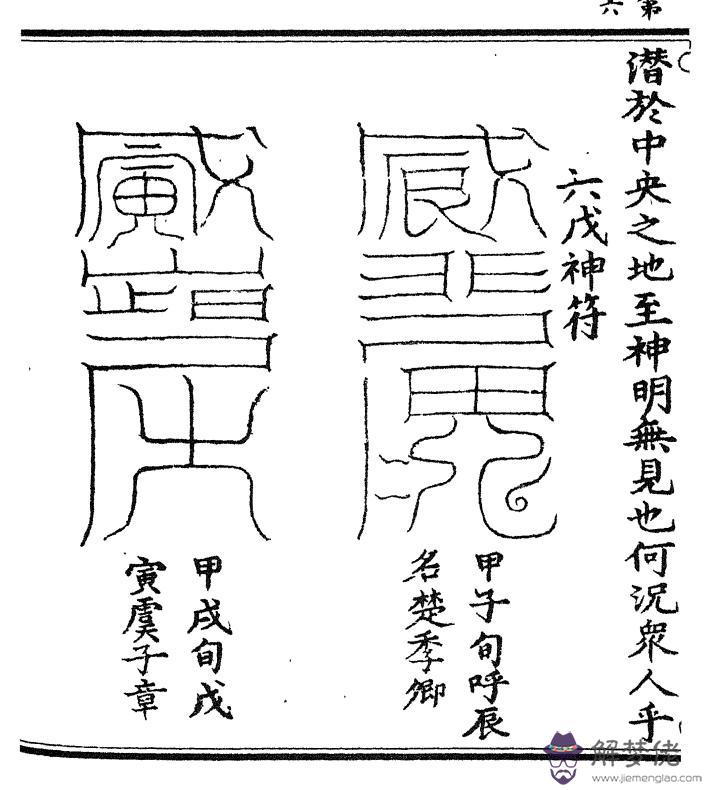 第
六
潛於中央之地至神明無見也何況衆人乎
六戊神符
甲子旬呼辰
名楚季卿
甲戌旬戊
寅虞子章
解梦佬
www.jiemenglao.com